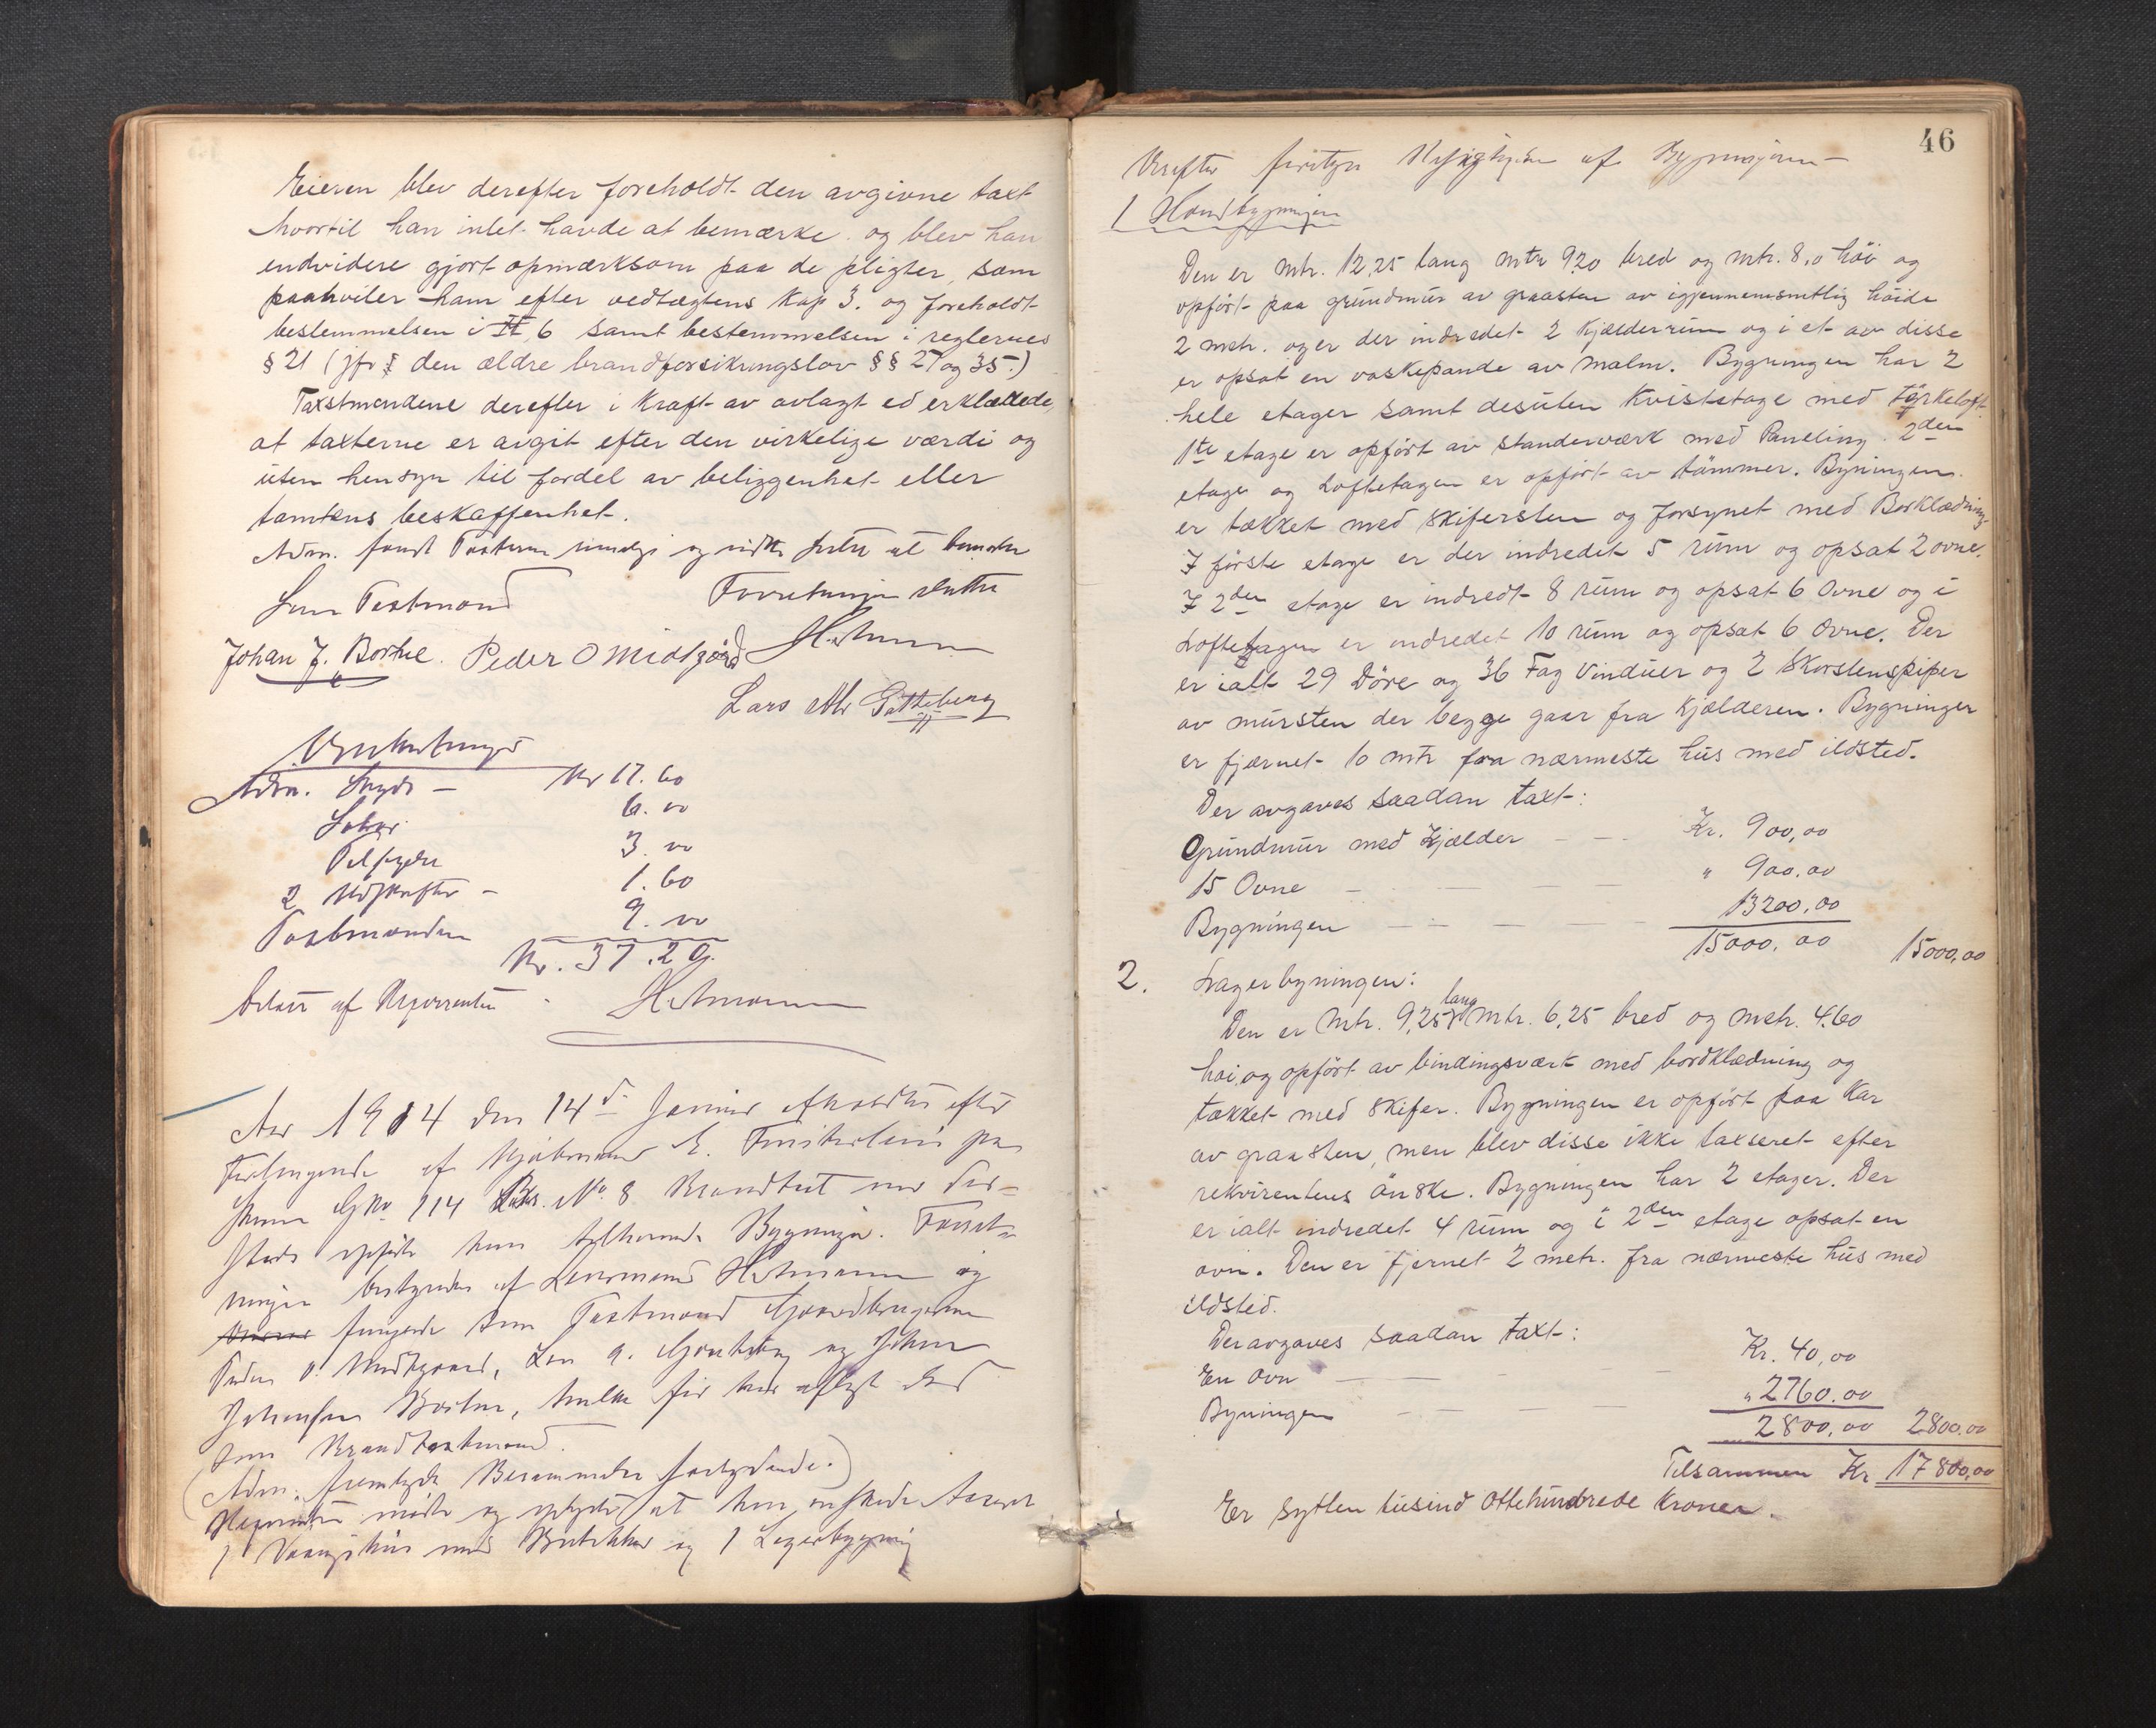 Eieren blev derefter foreholdt den avgivne taxt
hvortil han intet havde at bemærke og blev han
endvidere gjort opmærksom paa de pligter, som
paahviler ham efter vedtægtens Kap 3. og foreholdt
bestemmelsen i II, 6 samt bestemmelsen i reglernes
§ 21 (jfr § den ældre brandforsikringslov §§ 27 og 35.)
Taxstmændene derefter i kraft av avlagt ed erklærede,
at taxterne er avgit efter den virkelige værdi og
uten hensyn til fordel av beliggenhet eller
tomtens beskaffenhet.
Adm. fandt Taxterne rimelige og vidste intet at bemærke
Som Taxtmænd Forretningen sluttet
Johan J. Bortne. Peder O Midtgård
Lars
Adm. Skyds — Kr 17.60
6.00
3.00
2 Udskrifter — 1.60
Taxtmændene 9.00
Kr. 37.20
betalt af Rekvirenten
Aar 1914 den 14de Januar afholdtes efter
Forlangende af
Gno 114 Bks. No. 8 Brandtaxt over der-
steds opførte ham tilhørende Bygninger. Forret-
ningen bestyredes af Lensmand og
fungerede som Taxtmænd Gaardbrugerne
Peder O. Midtgaard, Lars og Johan
Johansen Bortne, hvilke før have aflagt Ed
som Brandtaxtmænd.
(Adm. fremlagde Berammelse saalydende.)
Rekvirenten mødte og oplyste at han ønskede taxeret
1 Vaaningshus med Butikker og 1 Lagerbygning
46
Derefter foretoges Besigtigelse af Bygningerne —
1 Hovedbygningen
Den er Mtr. 12,25 lang mtr 9,20 bred og mtr. 8,0 höi og
opført paa grundmur av graasten av igjennemsnitlig höide
2 metr. og er der indredet 2 kjælderrum og i et av disse
er opsat en vaskepande av malm. Bygningen har 2
hele etager samt desuten Kvistetage med törkeloft.
1ste etage er opført av standerværk med Paneling. 2den
etage og Loftetagen er opført av tömmer. Byningen
er tækket med skifersten og forsynet med Borklædning.
I förste etage er der indredet 5 rum og opsat 2 ovne.
I 2den etage er indredt 8 rum og opsat 6 Ovne og i
Loftetagen er indredet 10 rum og opsat 6 Ovne. Der
er ialt 29 Döre og 36 Fag Vinduer og 2 Skorstenspiper
av mursten der begge gaar fra Kjælderen. Bygningen
er fjærnet 10 mtr fra nærmeste hus med ildsted.
Der avgaves saadan taxt:
Grundmur med Kjælder — — Kr. 900,00
15 Ovne — — — — " 900,00
Bygningen — — — — 13200,00
15000,00 15000,00
2. Lagerbyningen:
Den er Mtr. 9,25 lang Mtr. 6,25 bred og metr. 4,60
höi og opfört av bindingsværk med bordklædning og
tækket med skifer. Bygningen er opfört paa Kar
av graasten, men blev disse ikke taxseret efter
rekvirentens önske. Bygningen har 2 etager. Der
er ialt indredet 4 rum og i 2den etage opsat en
ovn. Den er fjernet 2 metr. fra nærmeste hus med
ildsted.
Der avgaves saadan taxt:
En Ovn — — — Kr. 40,00
Byningen — — — — " 2760,00
2800,00 2800,00
Tilsammen Kr 17800,00
Er sytten tusind ottehundrede Kroner.